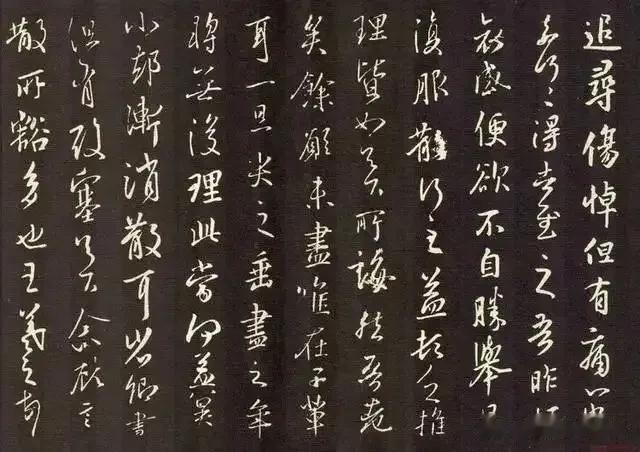 追尋傷悼但有痛心當
奈何奈何得告慰之吾昨頻
哀感便欲不自勝舉旦
復服散行之益頓乏推
理皆如足下所誨然吾老
矣餘願未盡惟在子輩
耳一旦哭之垂盡之年
轉無復理此當何益冀
小卻漸消散耳省卿書
但有酸塞足下念顧言
散所豁多也王羲之頓首